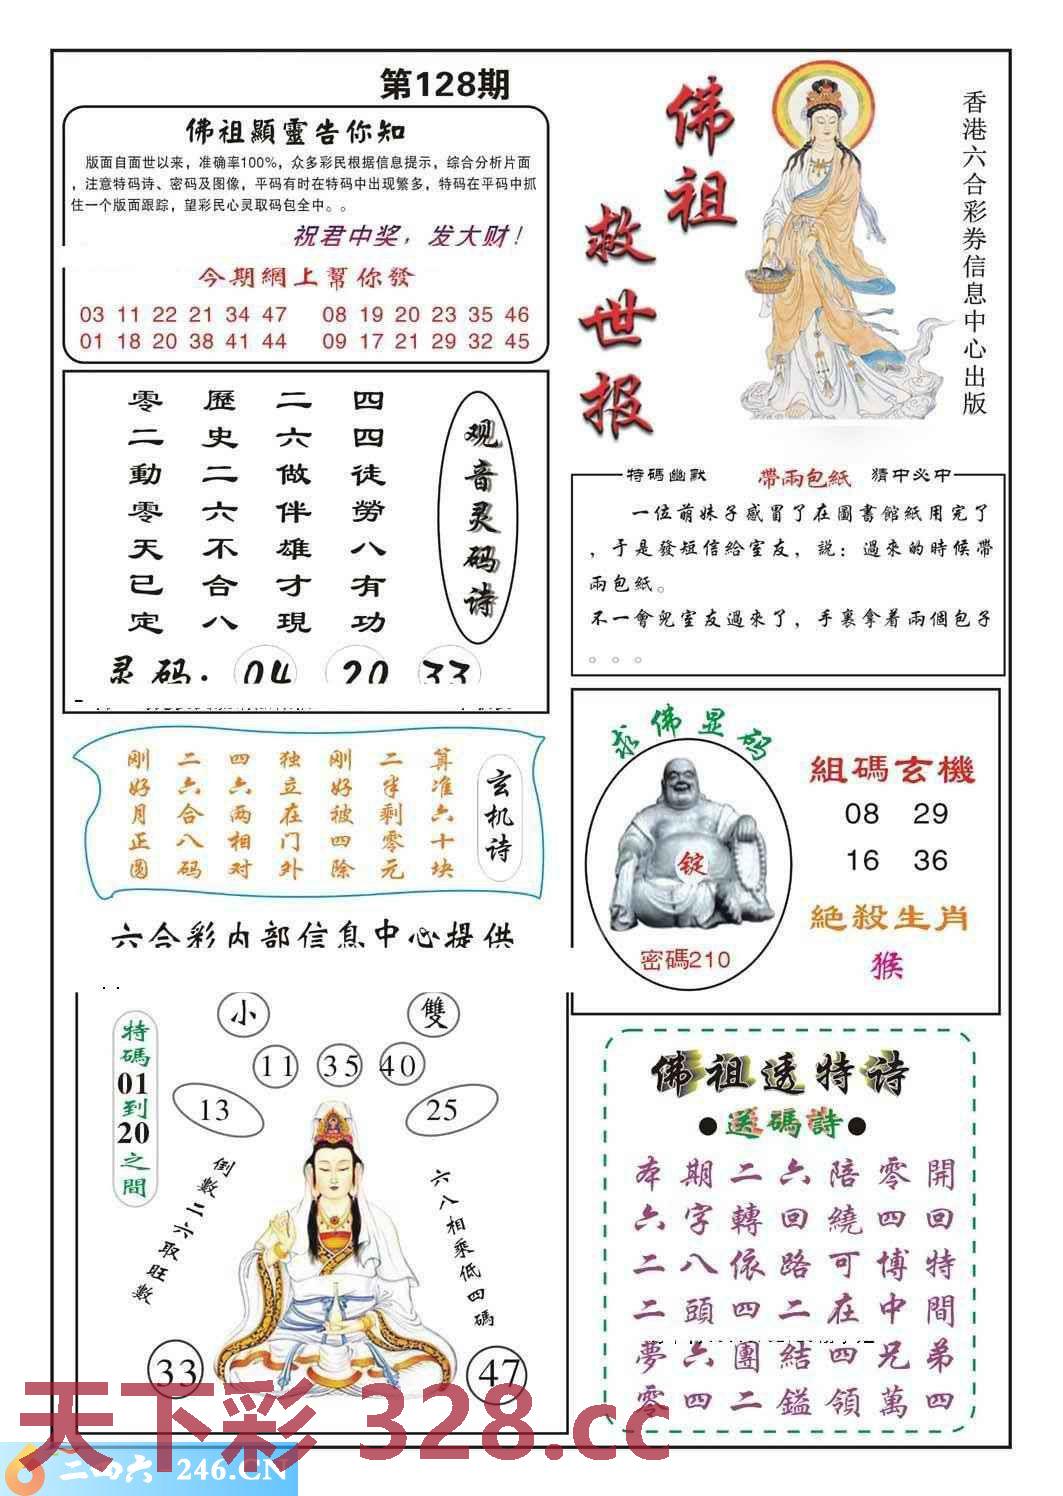 第128期
佛祖顯靈告你知
版面自面世以来，准确率100%，众多彩民根据信息提示，综合分析片面
，注意特码诗、密码及图像，平码有时在特码中出现繁多，特码在平码中抓
住一个版面跟踪，望彩民心灵取码包全中。。
祝君中奖，发大财！
今期網上幫你發
03 11 22 21 34 47 08 19 20 23 35 46
01 18 20 38 41 44 09 17 21 29 32 45
佛祖
救世报
香港六合彩券信息中心出版
观音灵码诗
四四徒勞八有功
二六做伴雄才現
歷史二六不合八
零二動零天已定
灵码：04 20 33
特碼幽默 帶兩包紙 猜中必中
一位萌妹子感冒了在圖書館紙用完了
，于是發短信給室友，説：過來的時候帶
兩包紙。
不一會兒室友過來了，手裏拿着兩個包子
。。。
玄机诗
算准六十块
二半剩零元
刚好被四除
独立在门外
四六两相对
二六合八码
刚好月正圆
六合彩内部信息中心提供
求佛显码
錠
密碼210
組碼玄機
08 29
16 36
絕殺生肖
猴
特碼01到20之間
小
雙
11 35 40
13
25
倒數二六取旺數
六八相乘低四碼
33
47
佛祖透特诗
●送碼詩●
本期二六陪零開
六字轉回繞四回
二八依路可博特
二頭四二在中間
夢六團結四兄弟
零四二鎰領萬四
天下彩 328.cc
二四六 246.CN